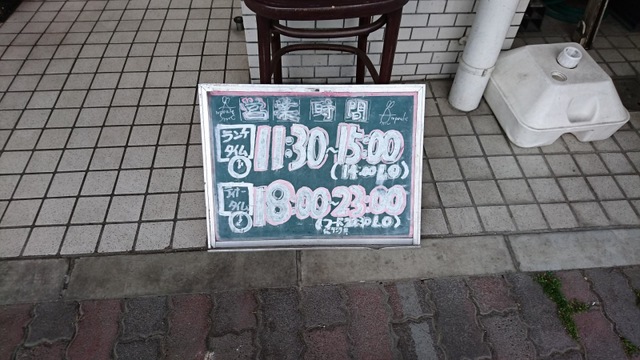 営業時間
ランチタイム 11:30~15:00
(14:00 LO)
ディナータイム 18:00~23:00
(フード22:30 LO)